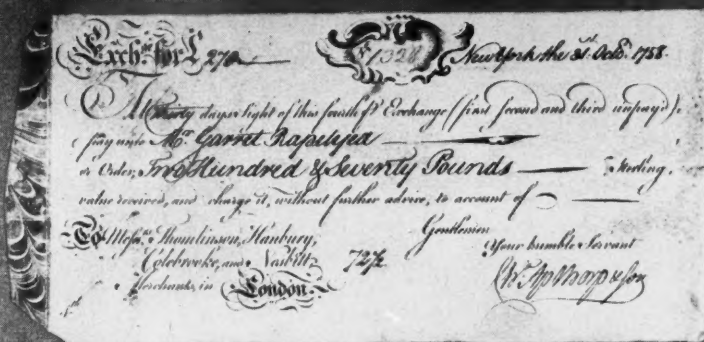 Exch.ᵃ for £ 270 Nº 1328 New York the 31st. Octo.r 1758.
At Thirty days sight of this fourth of Exchange (first second and third unpay'd).
pay unto Mr. Garret Rapelyed
or Order, Two Hundred & Seventy Pounds Sterling,
value received, and charge it, without further advice, to account of
Gentlemen
To Messrs. Thomlinson, Hanbury, Your humble Servant
Colebrooke, and Nesbitt, 72½
Merchants, in London. Chs. Apthorp & Son